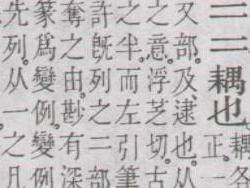 二二耦也耦各
正一
又部及逮也从
之意浮芝切古
之半而左引筆
許既列之二部
奪之由尠有深
篆爲變例變例
先列从一之几